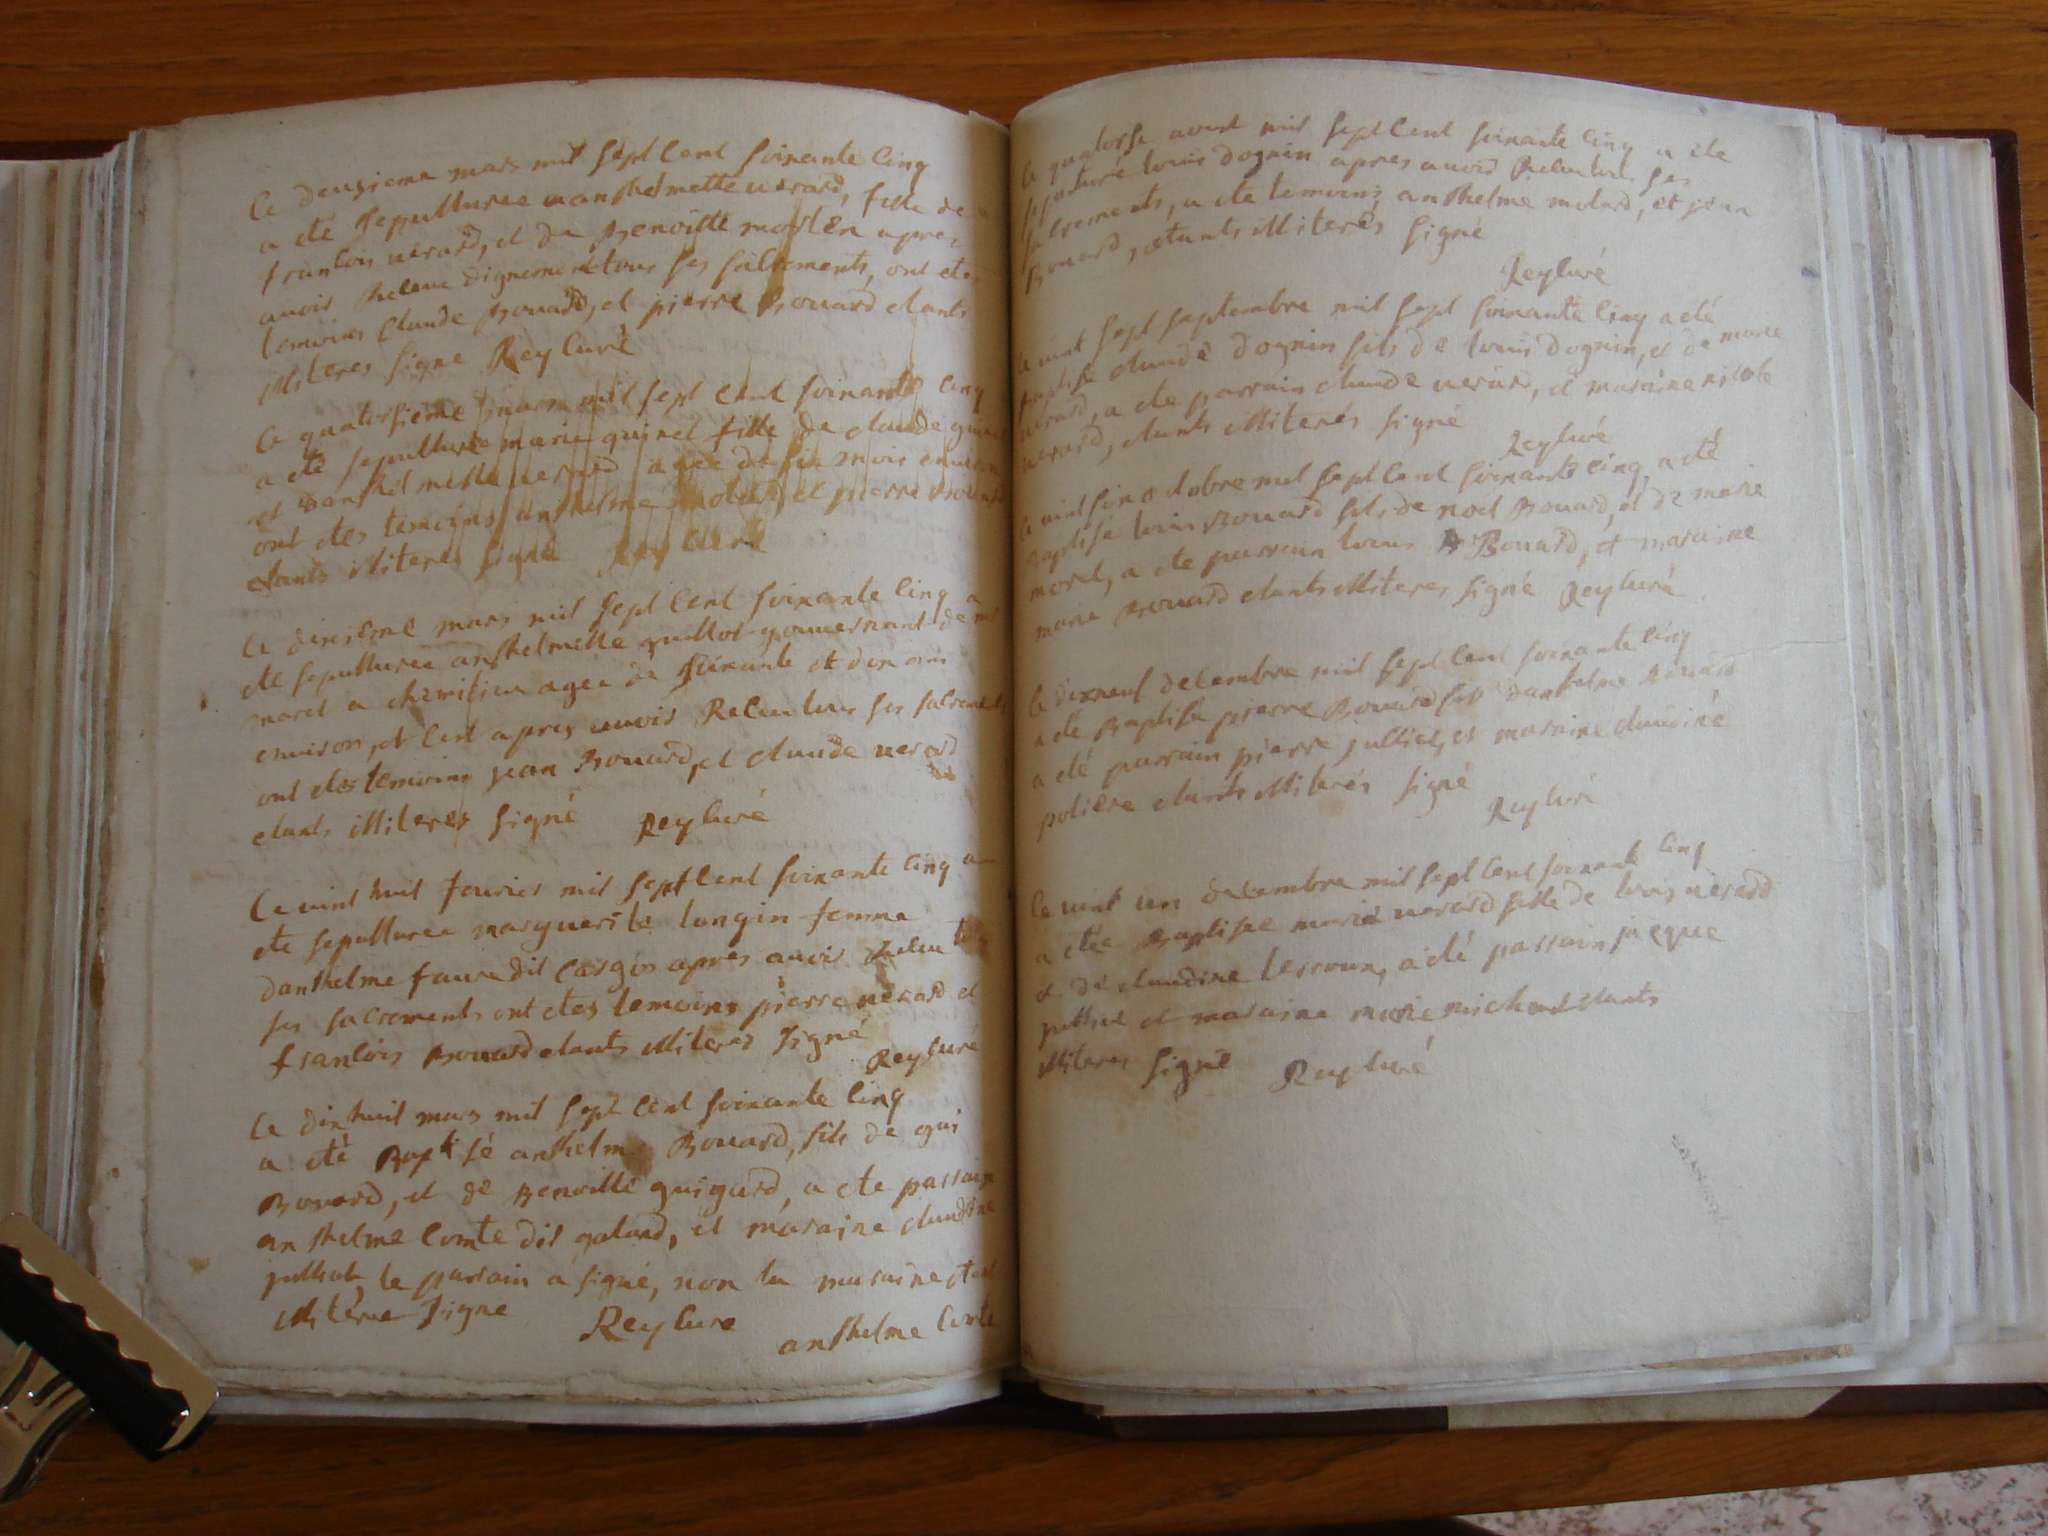 Le deusieme mars mil sept cent soixante cinq
a été sepulturee anthelmette uerard, fille de
francois uerard, et de Benoitte morlen apres
auoir Receue dignement tous ses sacrements, ont etes
temoins claude Bouard, et pierre Bouard etants
illiteres signe Rey curé
Le quatorsieme mars mil sept cent soixante cinq
a été sepulturee marie quinet fille de claude quinet
et danthelmette uerard agee de six mois enuiron
ont etes temoins anthelme molard, et pierre Bouard
etants illiteres signé Rey curé
Le dixieme mars mil sept cent soixante cinq a
été sepulturee anthelmette guillot gouuernant de
marcel a chemilieu agee de soixante et dix ans
enuiron, et c'est apres auoir Receu tous ses sacrements
ont etes temoins jean Bouard, et claude uerard
etants illiteres signé Rey curé
Le uint huit feurier mil sept cent soixante cinq a
ete sepulturee marguerite longin femme
danthelme faure dit apres auoir Receu tous
ses sacrements ont etes temoins pierre uerard et
francois Bouard etants illiteres signé
Rey curé
Le dixhuit mars mil sept cent soixante cinq
a été Baptisé anthelme Bouard, fils de gui
Bouard, et de Benoitte guigard, a ete parrain
anthelme comte dit galand, et maraine claudine
julliat le parrain a signé, non la maraine etant
illiteree signe Rey cure
anthelme comte
Le quatorse aoust mil sept cent soixante cinq a ete
sepulturé louis dognin apres auoir Receu tous ses
sacrements, a ete temoins anthelme molard, et jean
Bouard, etants illiterés signé
Rey curé
Le uint sept septembre mil sept soixante cinq a été
baptise claude dognin fils de louis dognin, et de marie
uerard, a ete parrain claude uerard, et maraine nicole
uerard, etants illiterés signé
Rey curé
Le uint six octobre mil sept cent soixante cinq, a été
Baptisé louis Bouard fils de noel Bouard, et de marie
morel, a ete parrain louis Bouard, et maraine
marie Bouard etants illiteres signé Rey curé
Le dixneuf decembre mil sept cent soixante cinq
a ete Baptisé pierre Bouard fils danthelme Bouard
a été parrain pierre julliet, et maraine claudine
poliere etants illiterés signé
Rey curé
Le uint un decembre mil sept cent soixante cinq
a étée Baptisee marie uerard fille de louis uerard
et de claudine terroux, a été parrain jacque
et maraine marie michaud etants
illiteres signé Rey curé